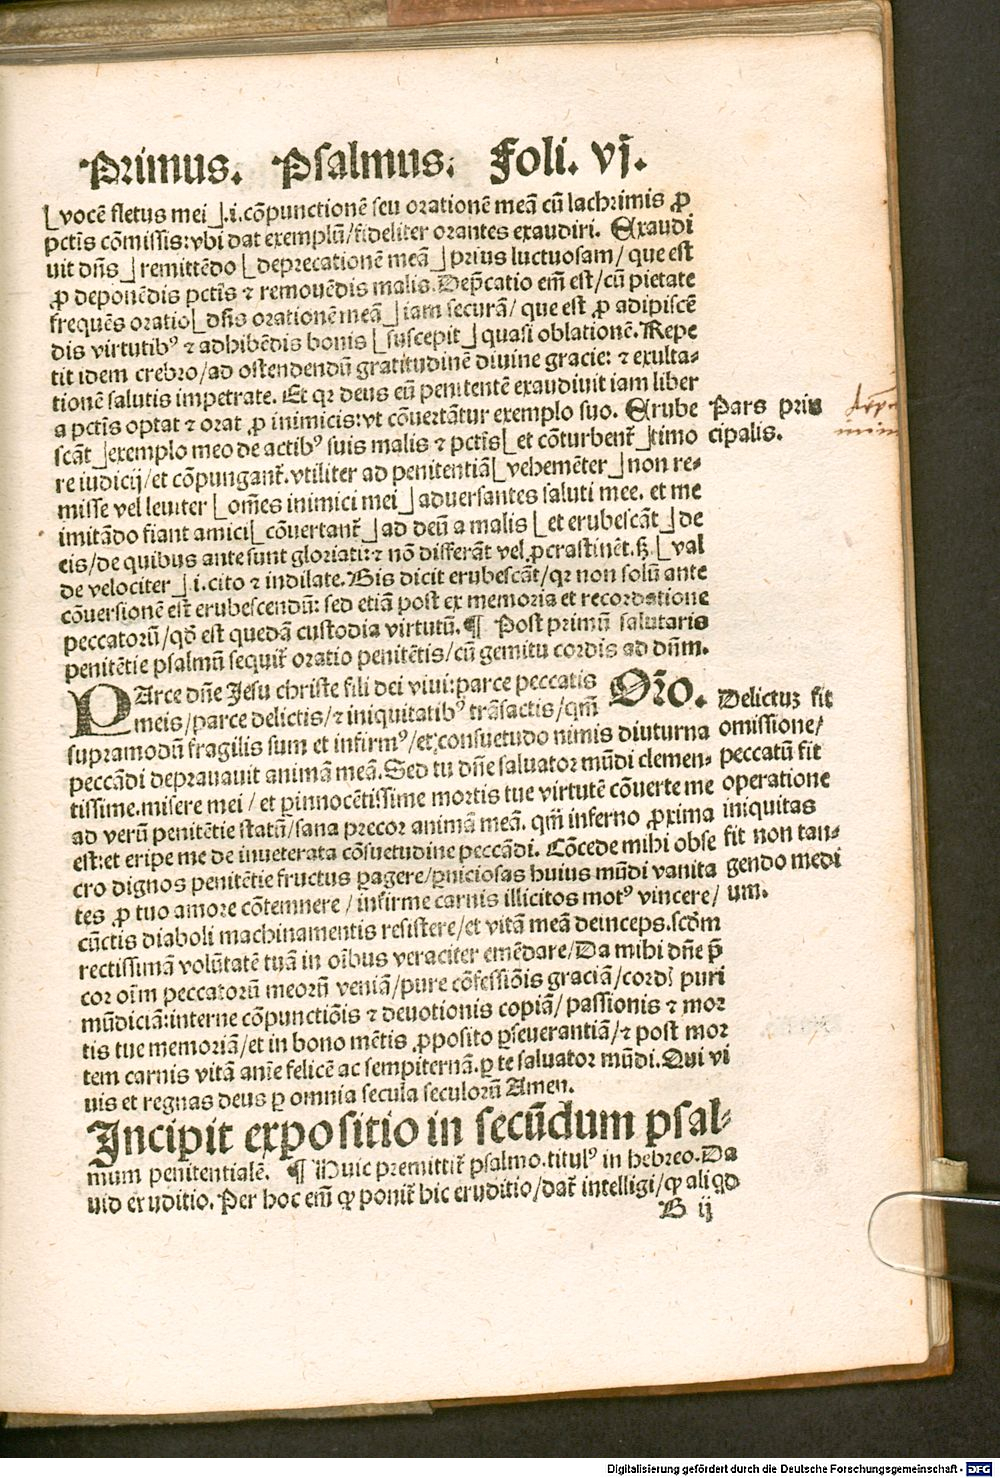 Primus. Psalmus. Foli. vj.
⌊vocē fletus mei⌋.i.cōpunctionē seu orationē meā cū lachrimis ꝓ
pctīs cōmissis:vbi dat exemplū/fideliter orantes exaudiri. Exaudi
uit dn̄s⌋ remittēdo ⌊deprecationē meā⌋ prius luctuosam/ que est
ꝓ deponēdis pctīs ⁊ remouēdis malis.Dep̄catio em̄ est/cū pietate
frequēs oratio⌊dn̄s orationē meā⌋ iam securā/ que est ꝓ adipiscē
dis virtutibꝰ ⁊ adhibēdis bonis ⌊suscepit⌋ quasi oblationē.Repe
tit idem crebro/ad ostendendū gratitudinē diuine gracie: ⁊ exulta-
tionē salutis impetrate. Et qꝛ deus eū penitentē exaudiuit iam liber
a pctīs optat ⁊ orat ꝓ inimicis:vt cōuertātur exemplo suo. Erube
scāt⌋exemplo meo de actibꝰ suis malis ⁊ pctīs⌊et cōturbent̄⌋timo
re iudicij/et cōpungant̄.vtiliter ad penitentiā⌊vehemēter⌋non re-
misse vel leuiter ⌊om̄es inimici mei⌋aduersantes saluti mee. et me
imitādo fiant amici⌊cōuertant̄⌋ad deū a malis ⌊et erubescāt⌋de
eis/de quibus ante sunt gloriati:⁊ nō differāt vel ꝓcrastinēt.sꝫ ⌊val
de velociter⌋.i.cito ⁊ indilate.Bis dicit erubescāt/qꝛ non solū ante
cōuersionē est erubescendū: sed etiā post ex memoria et recordatione
peccatorū/qd̄ est quedā custodia virtutū.¶ Post primū salutaris
penitētie psalmū sequit̄ oratio penitētis/cū gemitu cordis ad dn̄m.
Pars prin
cipalis.
PArce dn̄e Jesu christe fili dei viui:parce peccatis Or̄o.
meis/parce delictis/⁊ iniquitatibꝰ trāsactis/qm̄
supramodū fragilis sum et infirmꝰ/et consuetudo nimis diuturna
peccādi deprauauit animā meā.Sed tu dn̄e saluator mūdi clemen-
tissime.misere mei/et ꝑ innocētissime mortis tue virtutē cōuerte me
ad verū penitētie statū/sana precor animā meā. qm̄ inferno ꝓxima
est:et eripe me de inueterata cōsuetudine peccādi. Cōcede mihi obse
cro dignos penitētie fructus ꝑagere/ꝑniciosas huius mūdi vanita
tes ꝓ tuo amore cōtemnere/infirme carnis illicitos motꝰ vincere/
cūctis diaboli machinamentis resistere/et vitā meā deinceps.scdm̄
rectissimā volūtatē tuā in oībus veraciter emēdare/Da mihi dn̄e p̄
cor oīm peccatorū meorū veniā/pure cōfessiōis graciā/cordꝭ puri
mūdiciā:interne cōpunctiōis ⁊ deuotionis copiā/passionis ⁊ mor
tis tue memoriā/et in bono mētis ꝓposito ꝑseuerantiā/⁊ post mor
tem carnis vitā anīe felicē ac sempiternā.ꝑ te saluator mūdi.Qui vi
uis et regnas deus ꝑ omnia secula seculorū Amen.
Delictuꝫ fit
omissione/
peccatū fit
operatione
iniquitas
fit non tan-
gendo medi
um.
Incipit expositio in secūdum psal-
mum penitentialē. ¶ Huic premittit̄ psalmo.titulꝰ in hebreo.Da
uid eruditio. Per hoc em̄ ꝙ ponit̄ hic eruditio/dat̄ intelligi/ꝙ aliqd
B ij
Digitalisierung gefördert durch die Deutsche Forschungsgemeinschaft - DFG